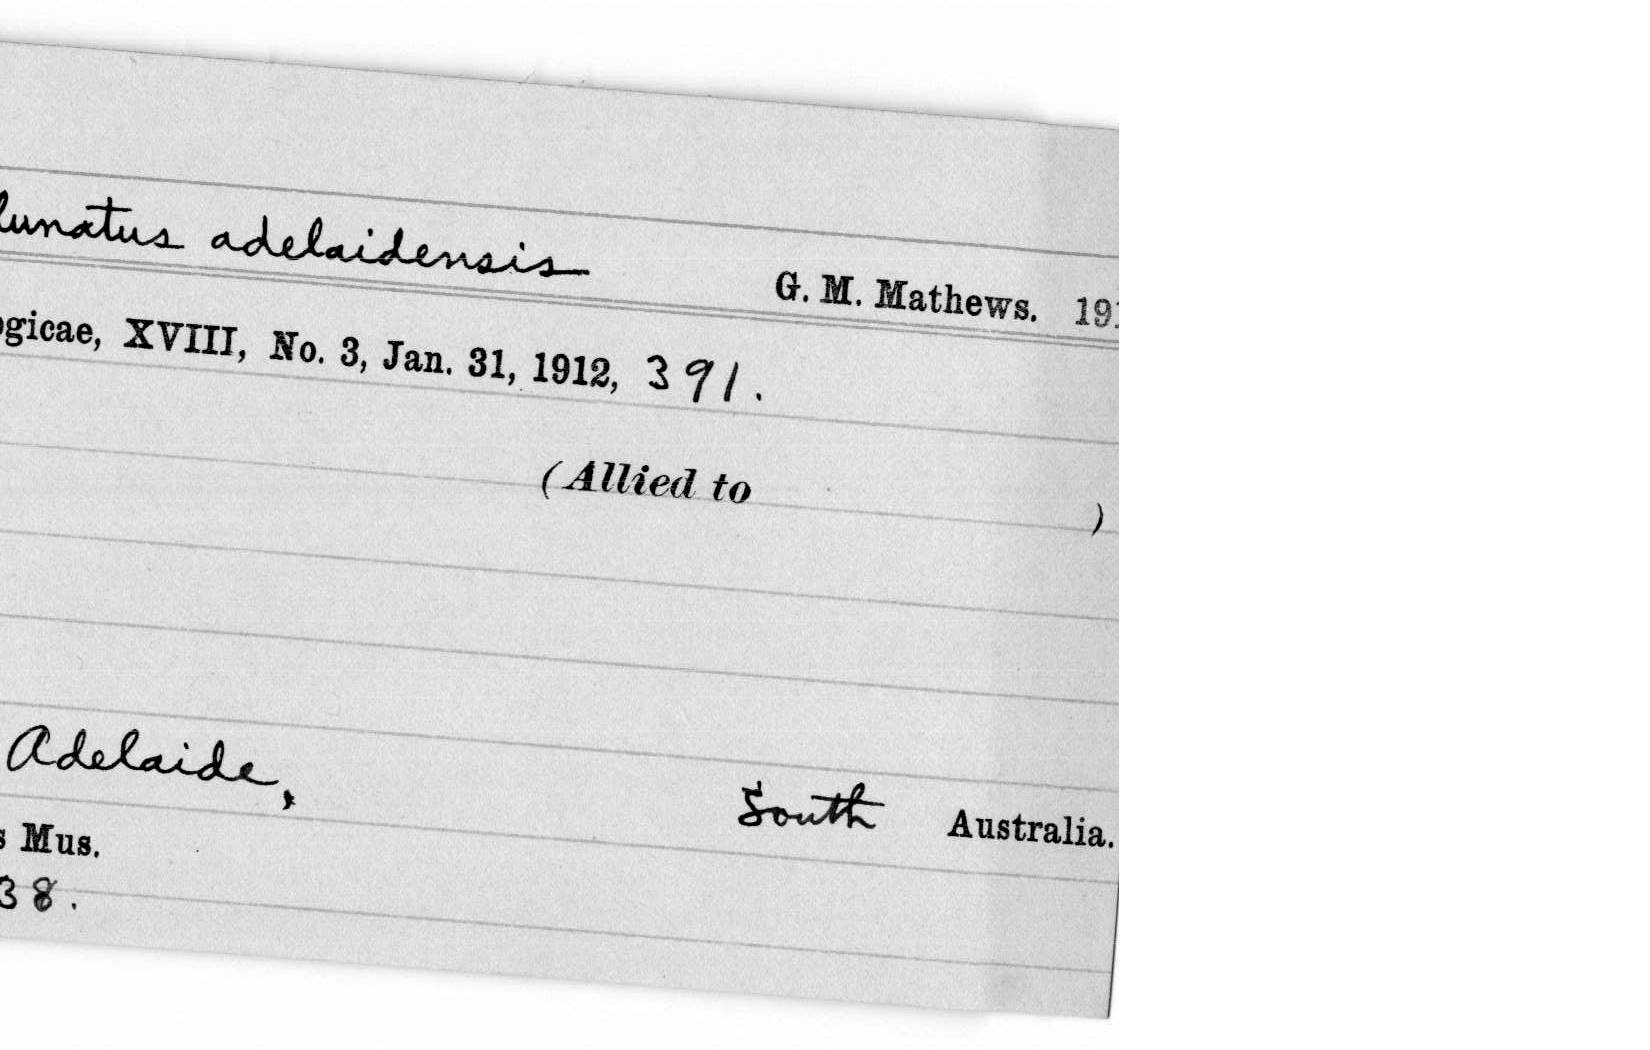 lunatus adelaidensis G. M. Mathews. 191
ogicae, XVIII, No. 3, Jan. 31, 1912, 391.
(Allied to )
Adelaide, South Australia.
s Mus.
38.